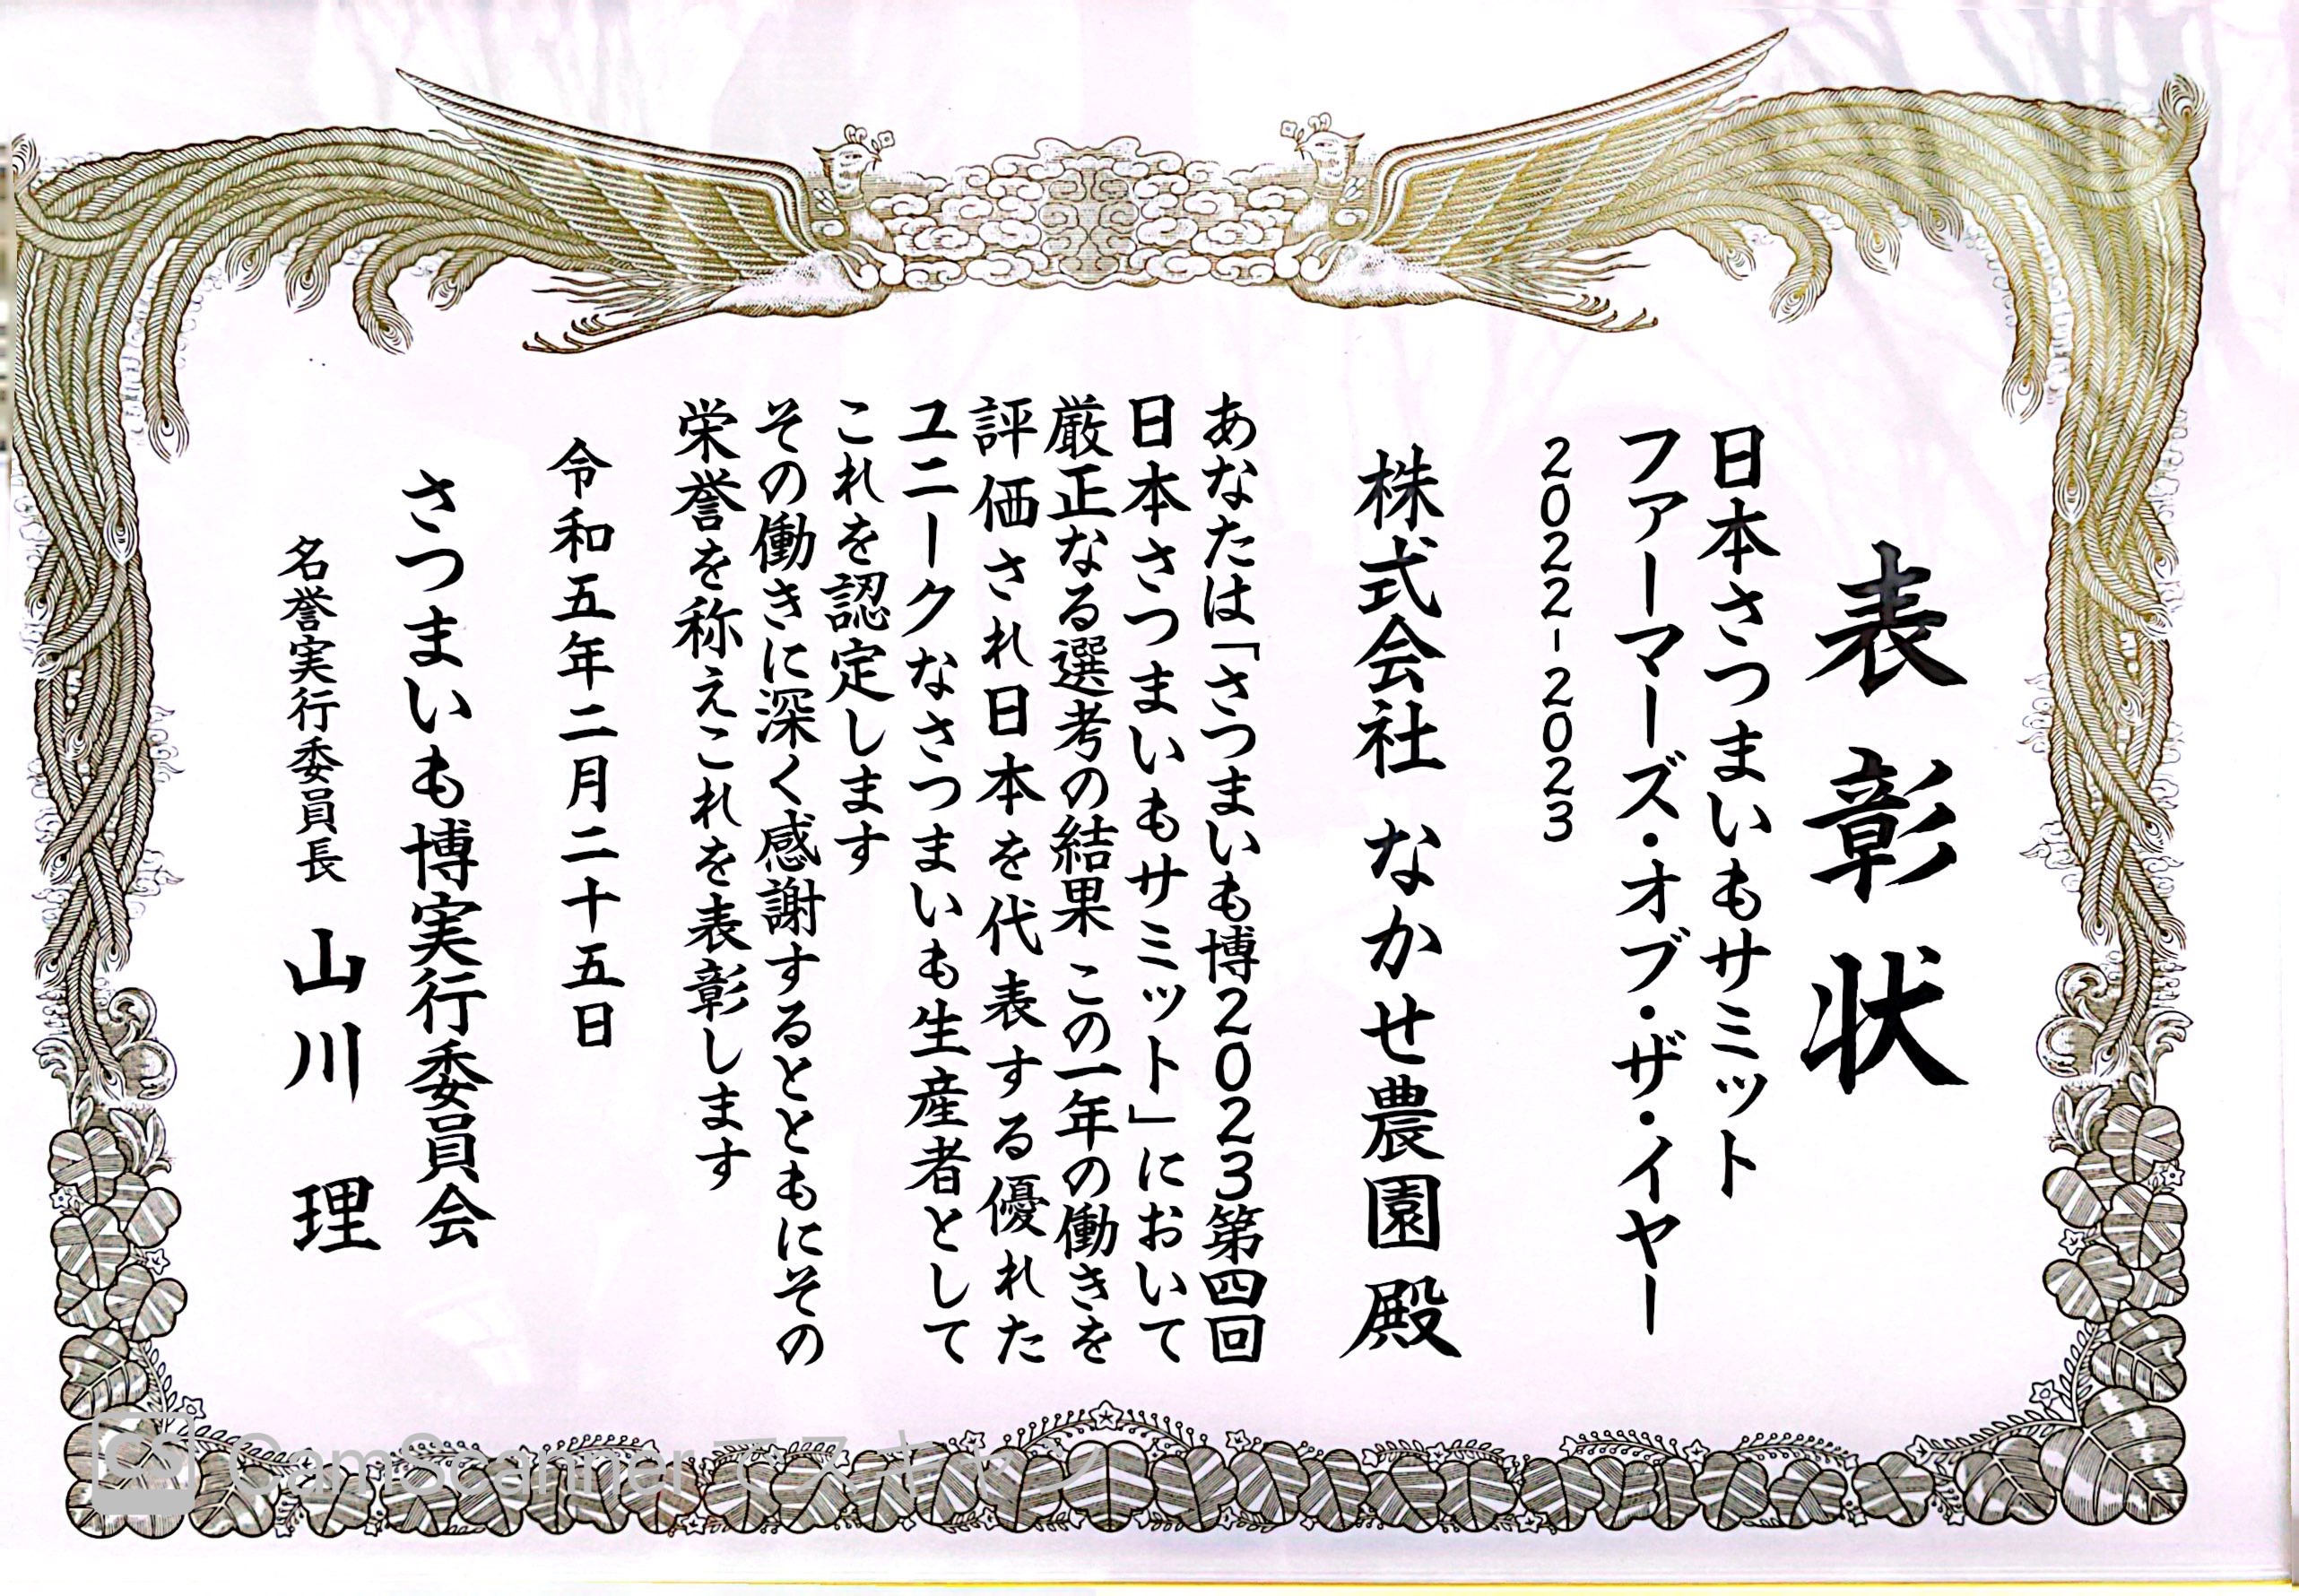 表彰状
日本さつまいもサミット
ファーマーズ・オブ・ザ・イヤー
2022-2023
株式会社 なかせ農園 殿
あなたは「さつまいも博2023第四回
日本さつまいもサミット」において
厳正なる選考の結果 この一年の働きを
評価され日本を代表する優れた
ユニークなさつまいも生産者として
これを認定します
その働きに深く感謝するとともにその
栄誉を称えこれを表彰します
令和五年二月二十五日
さつまいも博実行委員会
名誉実行委員長 山川 理
CS CamScanner でスキャン